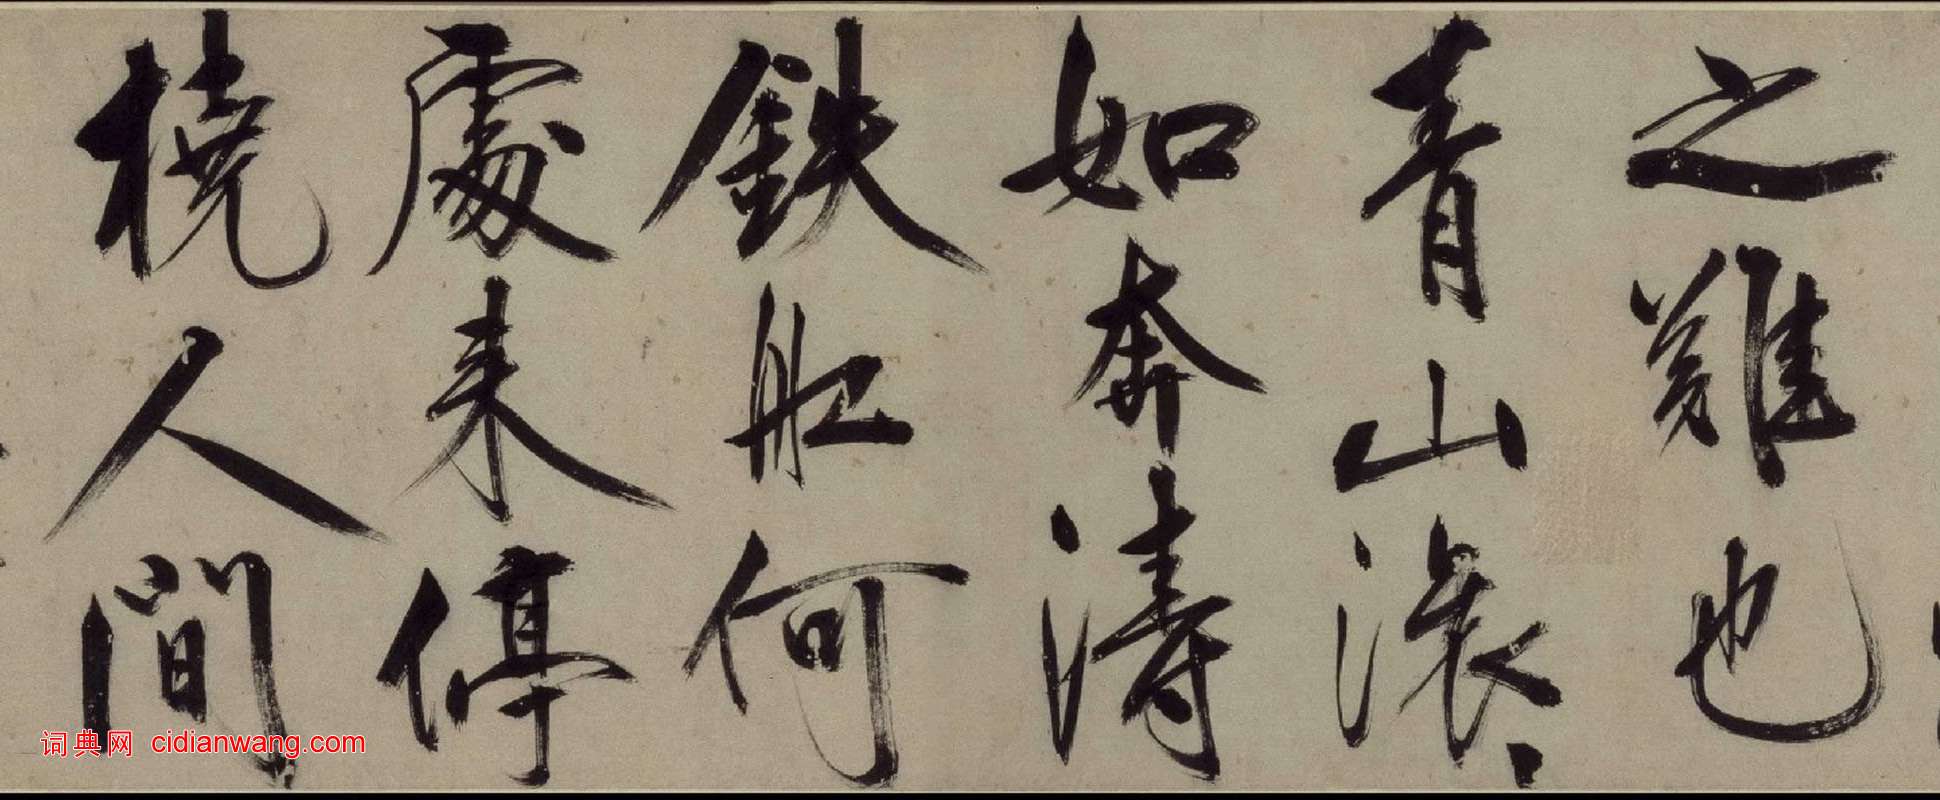 之難也
青山滚〻
如奔濤
鉄舡何
處来停
橈人間
词典网 cidianwang.com